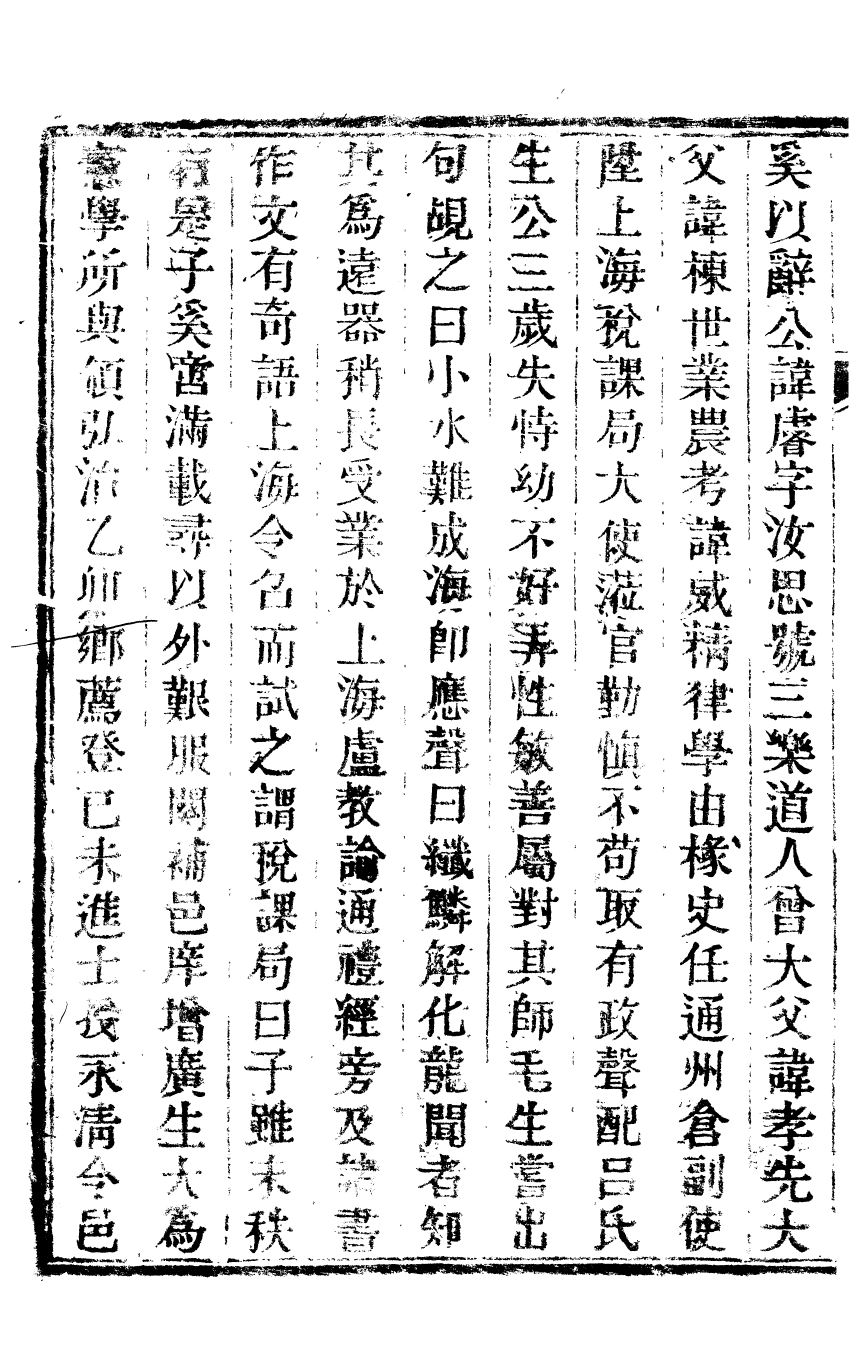 奚以辭公諱睿字汝思號三樂道人曾大父諱孝先大
父諱棟世業農考諱威精律學由椽史任通州倉副使
陞上海稅課局大使涖官勤慎不苟取有政聲配呂氏
生公三歲失恃幼不好弄性敏善屬對其師毛生嘗出
句覘之曰小水難成海即應聲曰纖鱗解化龍聞者知
其爲遠器稍長受業於上海盧教諭通禮經旁及諸書
作文有奇語上海令召而試之謂稅課局曰子雖末秩
有是子奚啻滿載尋以外艱服闋補邑庠增廣生大為
憲學所與領弘治乙卯鄉薦登己未進士長永清令邑